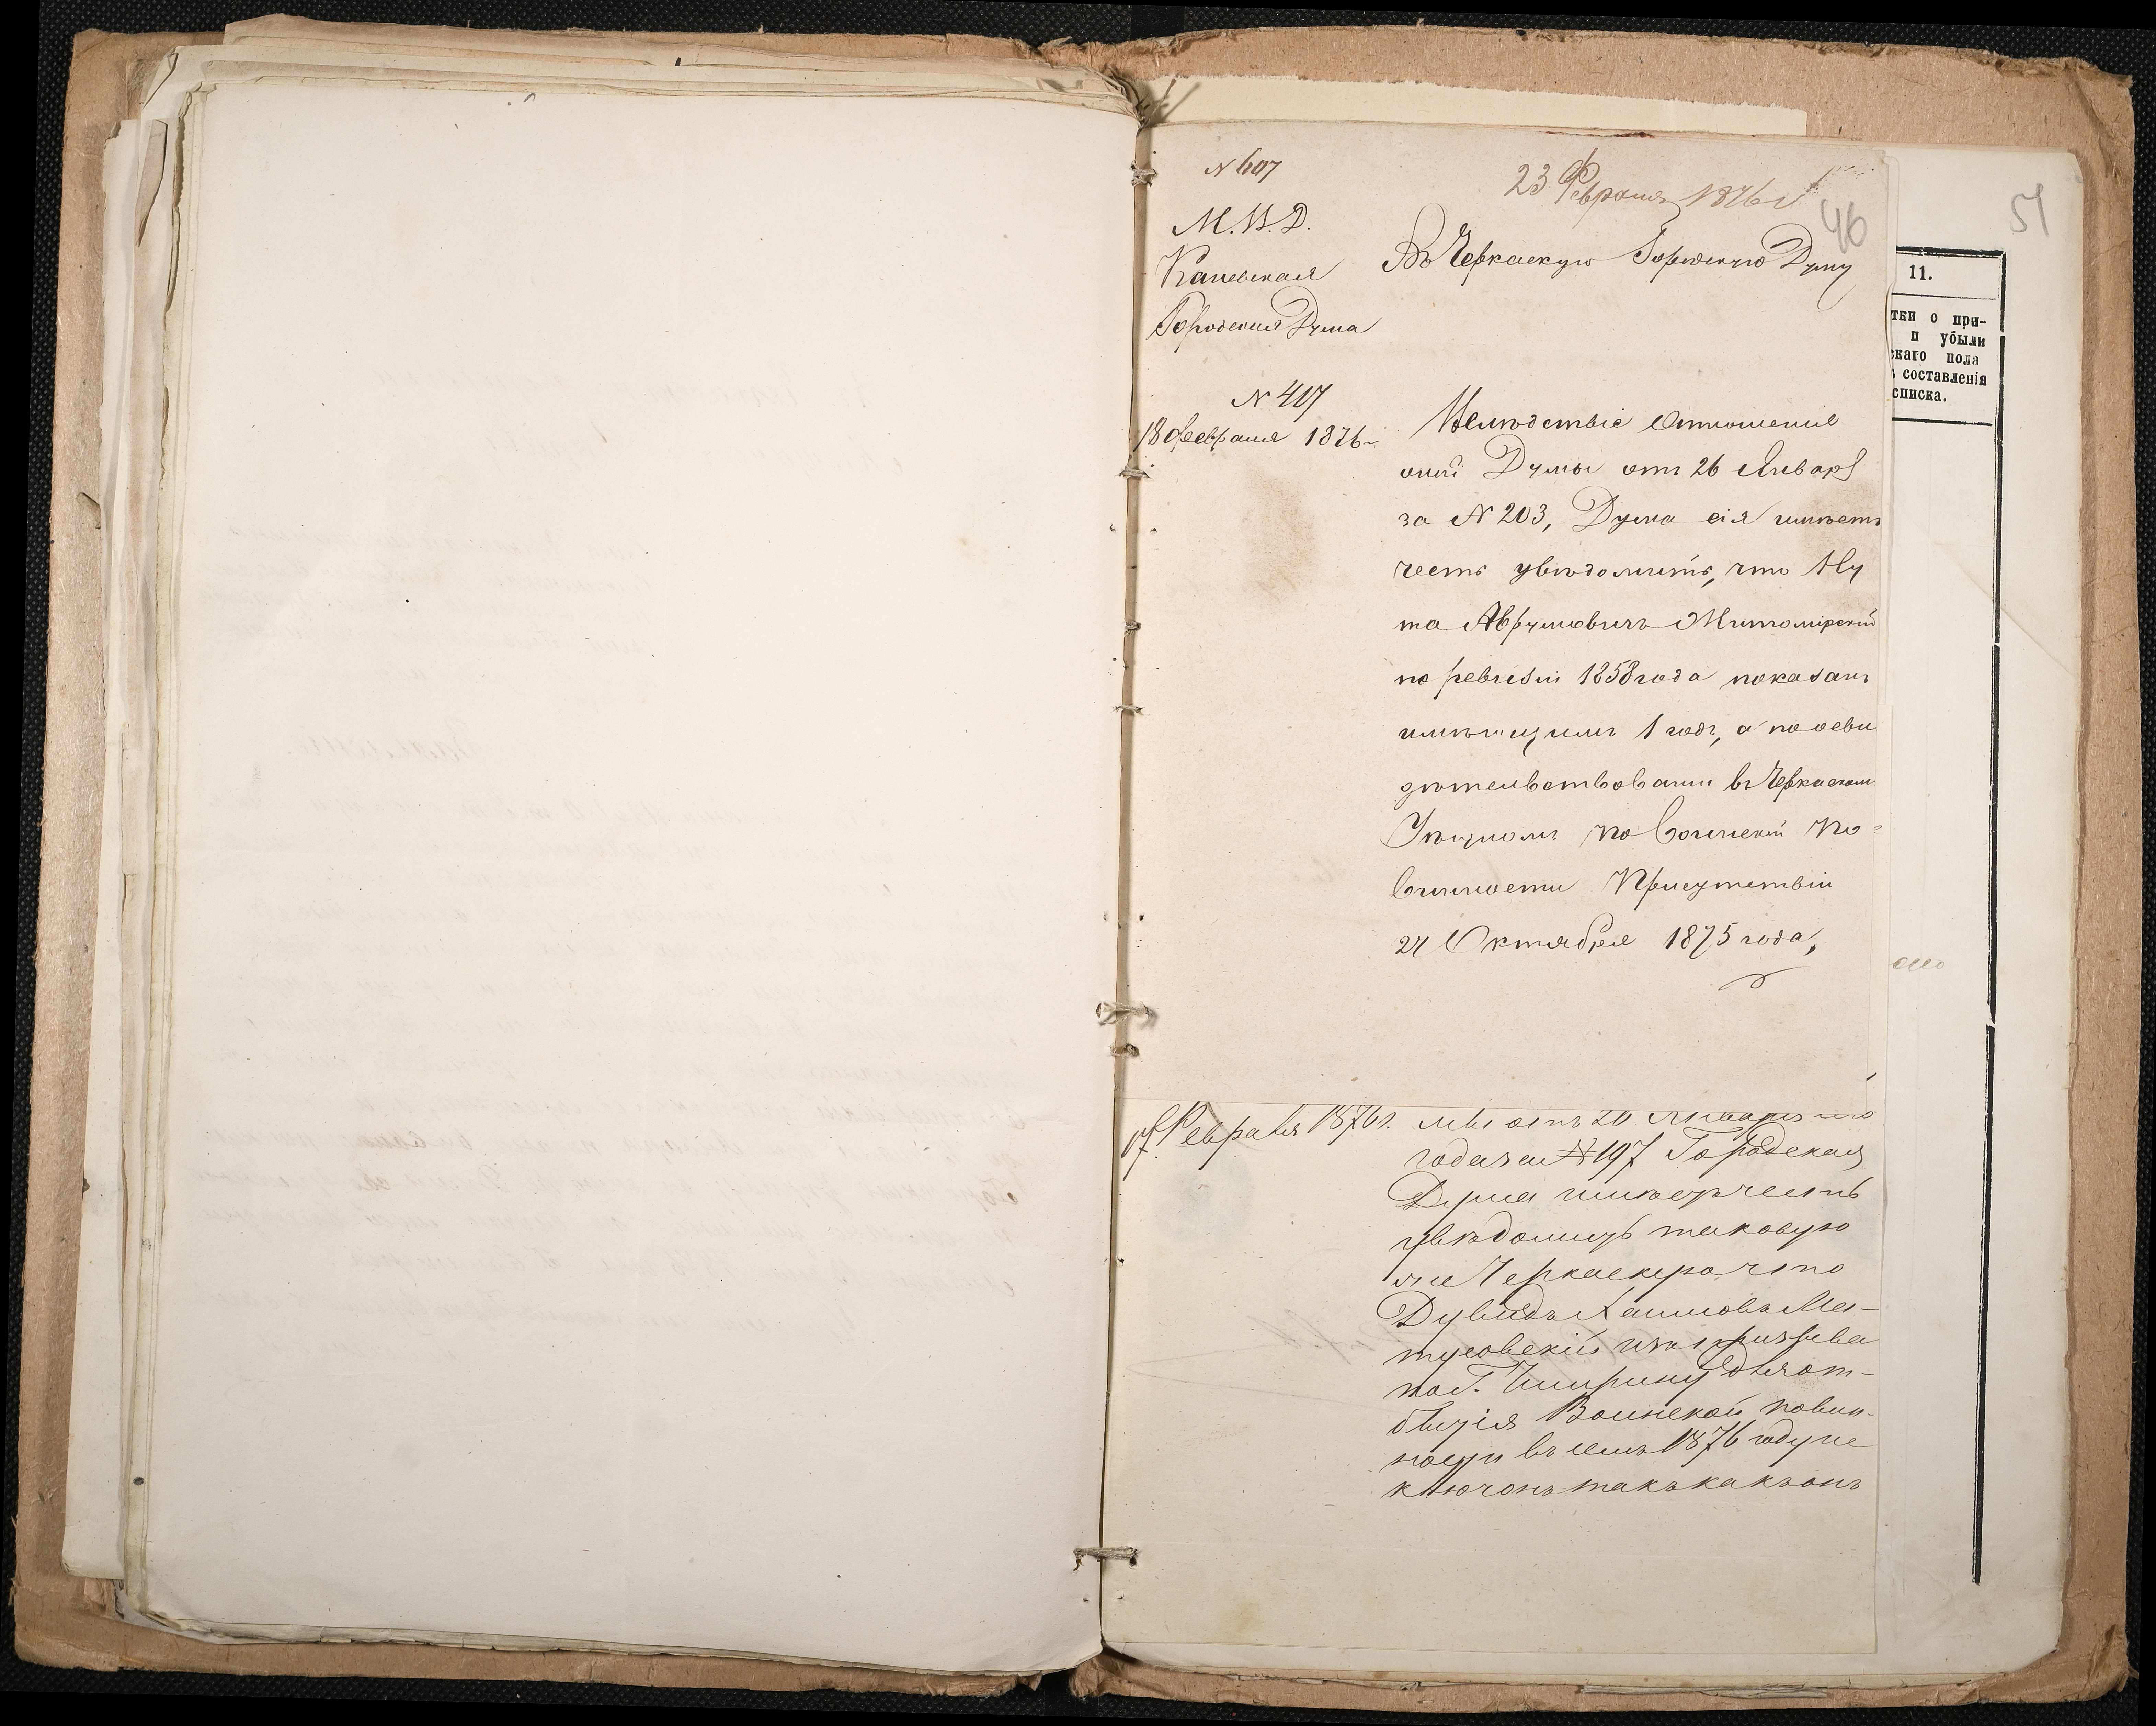 N 607
23 Февраля 1876 г
46
51
М. В. Д.
Каневская
Городская Дума
Въ Черкаскую Городскую Думу
N 417
18 февраля 1876 г
Вслѣдствіе Отношенія
оной Думы отъ 26 Января
за N 203, Дума сія имѣетъ
честь увѣдомить, что Ну
та Аврумовичъ Житомірскій
по ревизіи 1858 года показанъ
имѣющимъ 1 годъ, а по осви
дѣтельствованіи въ Черкаскомъ
Уѣздномъ по Воинской По-
винности Присутствіи
27 Октября 1875 года,
11.
тки о при-
и убыли
скаго пола
ь составленія
списка.
Февраля 1876 г. мы отъ 20 Января
года за N 197 Городская
Дума имѣетъ честь
увѣдомить таковую
же Черкаскую что
Дувидъ Хаимовъ Ма-
тусовскій изъ призыва
по Г. Чигирину для от-
бытія Воинской повин-
ности въ семъ 1876 году не
ключонъ такъ какъ онъ